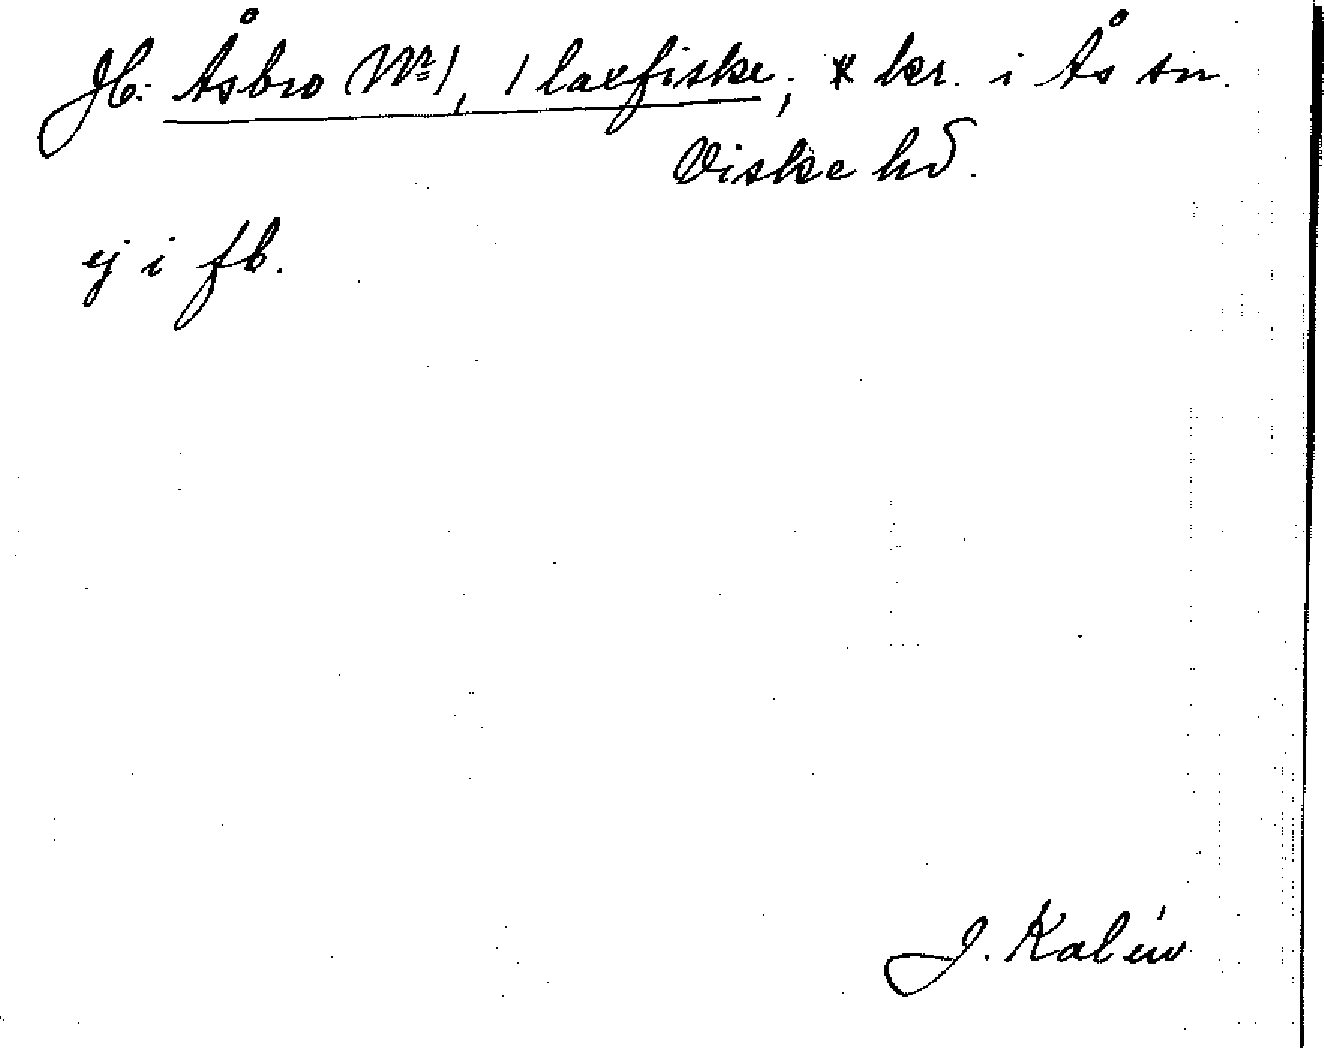 Jb: Åsbro Nr 1, 1 laxfiske; * kr. i Ås sn.
Viske hd.
ej i fb.
J. Kalén